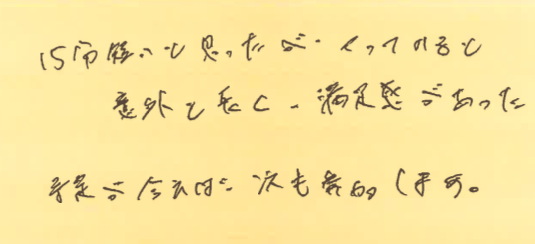 15分短いと思ったが、やってみると
意外と長く、満足感があった
予定が合えば、次も参加します。